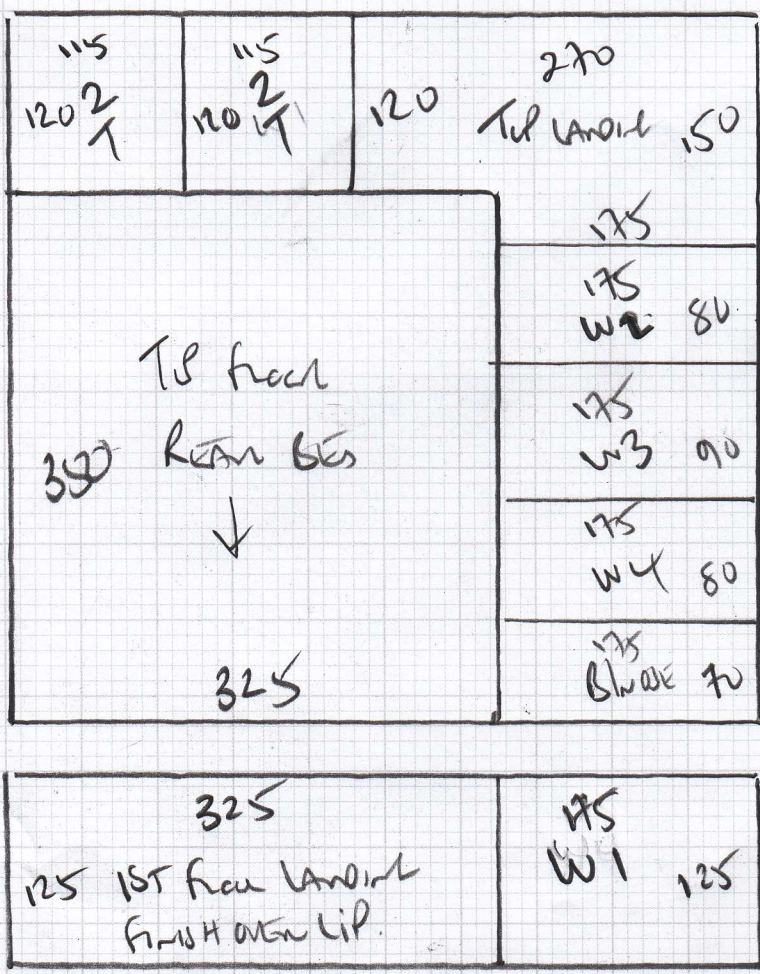 115
120 2
T
115
2
120 1T
270
120 TOP LANDING 150
175
175
W2 80
175
W3 90
175
W4 80
175
70
TOP FLOOR
REAR BED
350
325
325
125 1ST FLOOR LANDING
FINISH OVER LIP.
175
W1 125